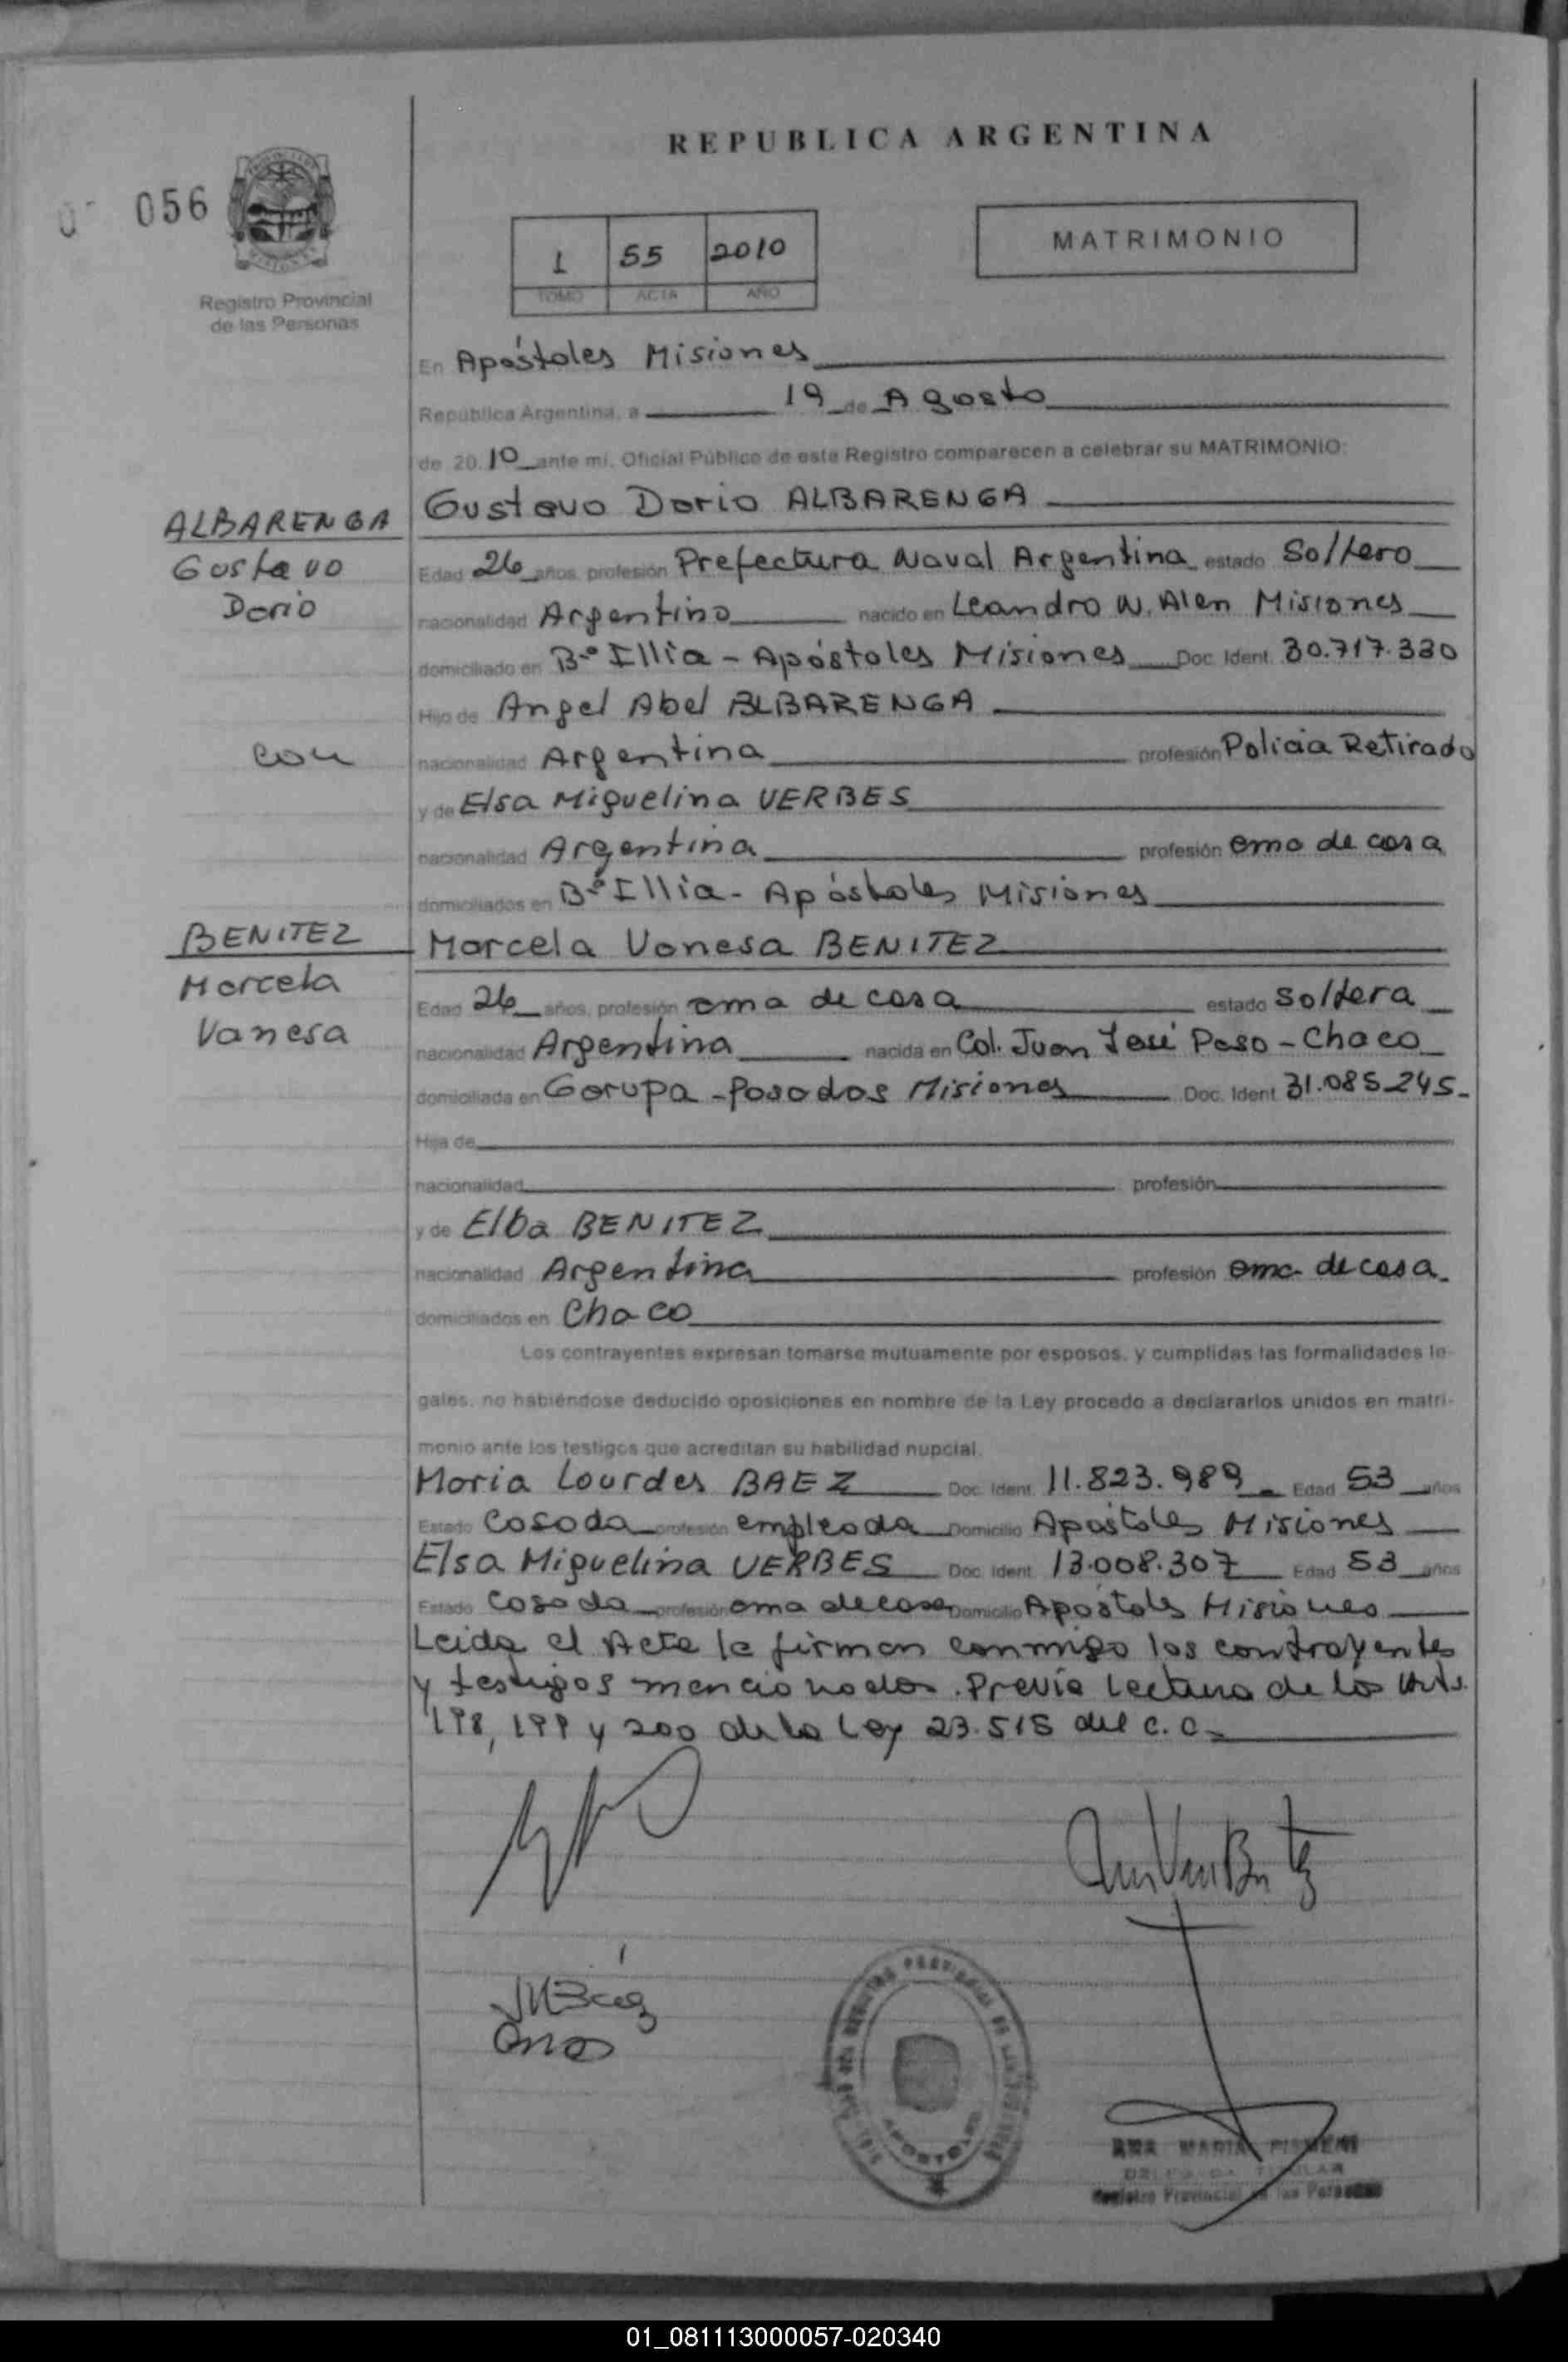 REPUBLICA ARGENTINA
056
Registro Provincial
de las Personas
1 55 2010
TOMO ACTA AÑO
MATRIMONIO
En Apóstoles Misiones
República Argentina, a 19 de Agosto
de 20.10 ante mi, Oficial Público de este Registro comparecen a celebrar su MATRIMONIO:
ALBARENGA
Gustavo
Dario
Gustavo Dario ALBARENGA
Edad 26 años, profesión Prefectura Naval Argentina estado Soltero
nacionalidad Argentino nacido en Leandro N. Alen Misiones
domiciliado en Bº Illia - Apóstoles Misiones Doc. Ident. 30.717.330
Hijo de Angel Abel ALBARENGA
con
nacionalidad Argentina profesión Policia Retirado
y de Elsa Miguelina VERBES
nacionalidad Argentina profesión ama de casa
domiciliados en Bº Illia - Apóstoles Misiones
BENITEZ
Marcela
Vanesa
Marcela Vanesa BENITEZ
Edad 26 años, profesión ama de casa estado Soltera
nacionalidad Argentina nacida en Col. Juan José Paso - Chaco
domiciliada en Garupa - Posadas Misiones Doc. Ident. 31.085.245.-
Hija de
nacionalidad profesión
y de Elba BENITEZ
nacionalidad Argentina profesión ama de casa.
domiciliados en Chaco
Los contrayentes expresan tomarse mutuamente por esposos, y cumplidas las formalidades le-
gales, no habiéndose deducido oposiciones en nombre de la Ley procedo a declararlos unidos en matri-
monio ante los testigos que acreditan su habilidad nupcial.
Maria Lourdes BAEZ Doc. Ident. 11.823.989 Edad 53 años
Estado Casada profesión empleada Domicilio Apóstoles Misiones
Elsa Miguelina VERBES Doc. Ident. 13.008.307 Edad 53 años
Estado Casada profesión ama de casa Domicilio Apóstoles Misiones
Leida el Acta la firman conmigo los contrayentes
y testigos mencionados. Previa lectura de los Arts.
198, 199 y 200 de la Ley 23.515 del C.C.
APOSTOLES
ANA MARIA
Registro Provincial de las Personas
01_081113000057-020340